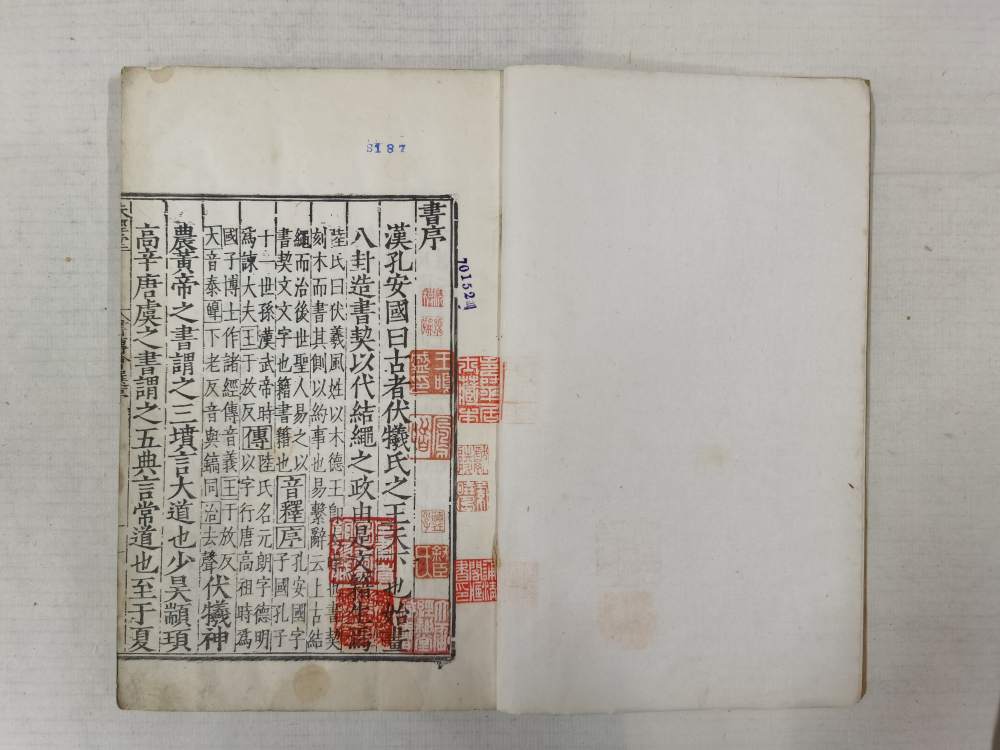 書序
漢孔安國曰古者伏犧氏之王天下也始畫
八卦造書契以代結繩之政由是文籍生焉
陸氏曰伏羲風姓以木德王即書契
刻木而書其側以約事也易繫辭云上古結
繩而治後世聖人易之以
書契文文字也籍書籍也
音釋
序
孔安國字
子國孔子
十一世孫漢武帝時
爲諫大夫王于放反
傳
陸氏名元朗字德明
以字行唐高祖時爲
國子博士作諸經傳音義王于放反
大音泰皡下老反音與鎬同治去聲
伏犧神
農黃帝之書謂之三墳言大道也少昊顓頊
高辛唐虞之書謂之五典言常道也至于夏
8187
701524